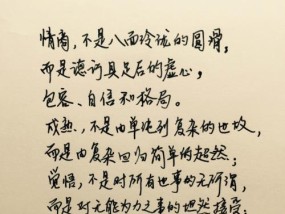 情商，不是八面玲珑的圆滑，
而是德行具足后的虚心，
包容、自信和格局。
成熟，不是由单纯到复杂的世故，
而是由复杂回归简单的超然；
觉悟，不是对所有世事的无所谓，
而是对无能为力之事的坦然接受；